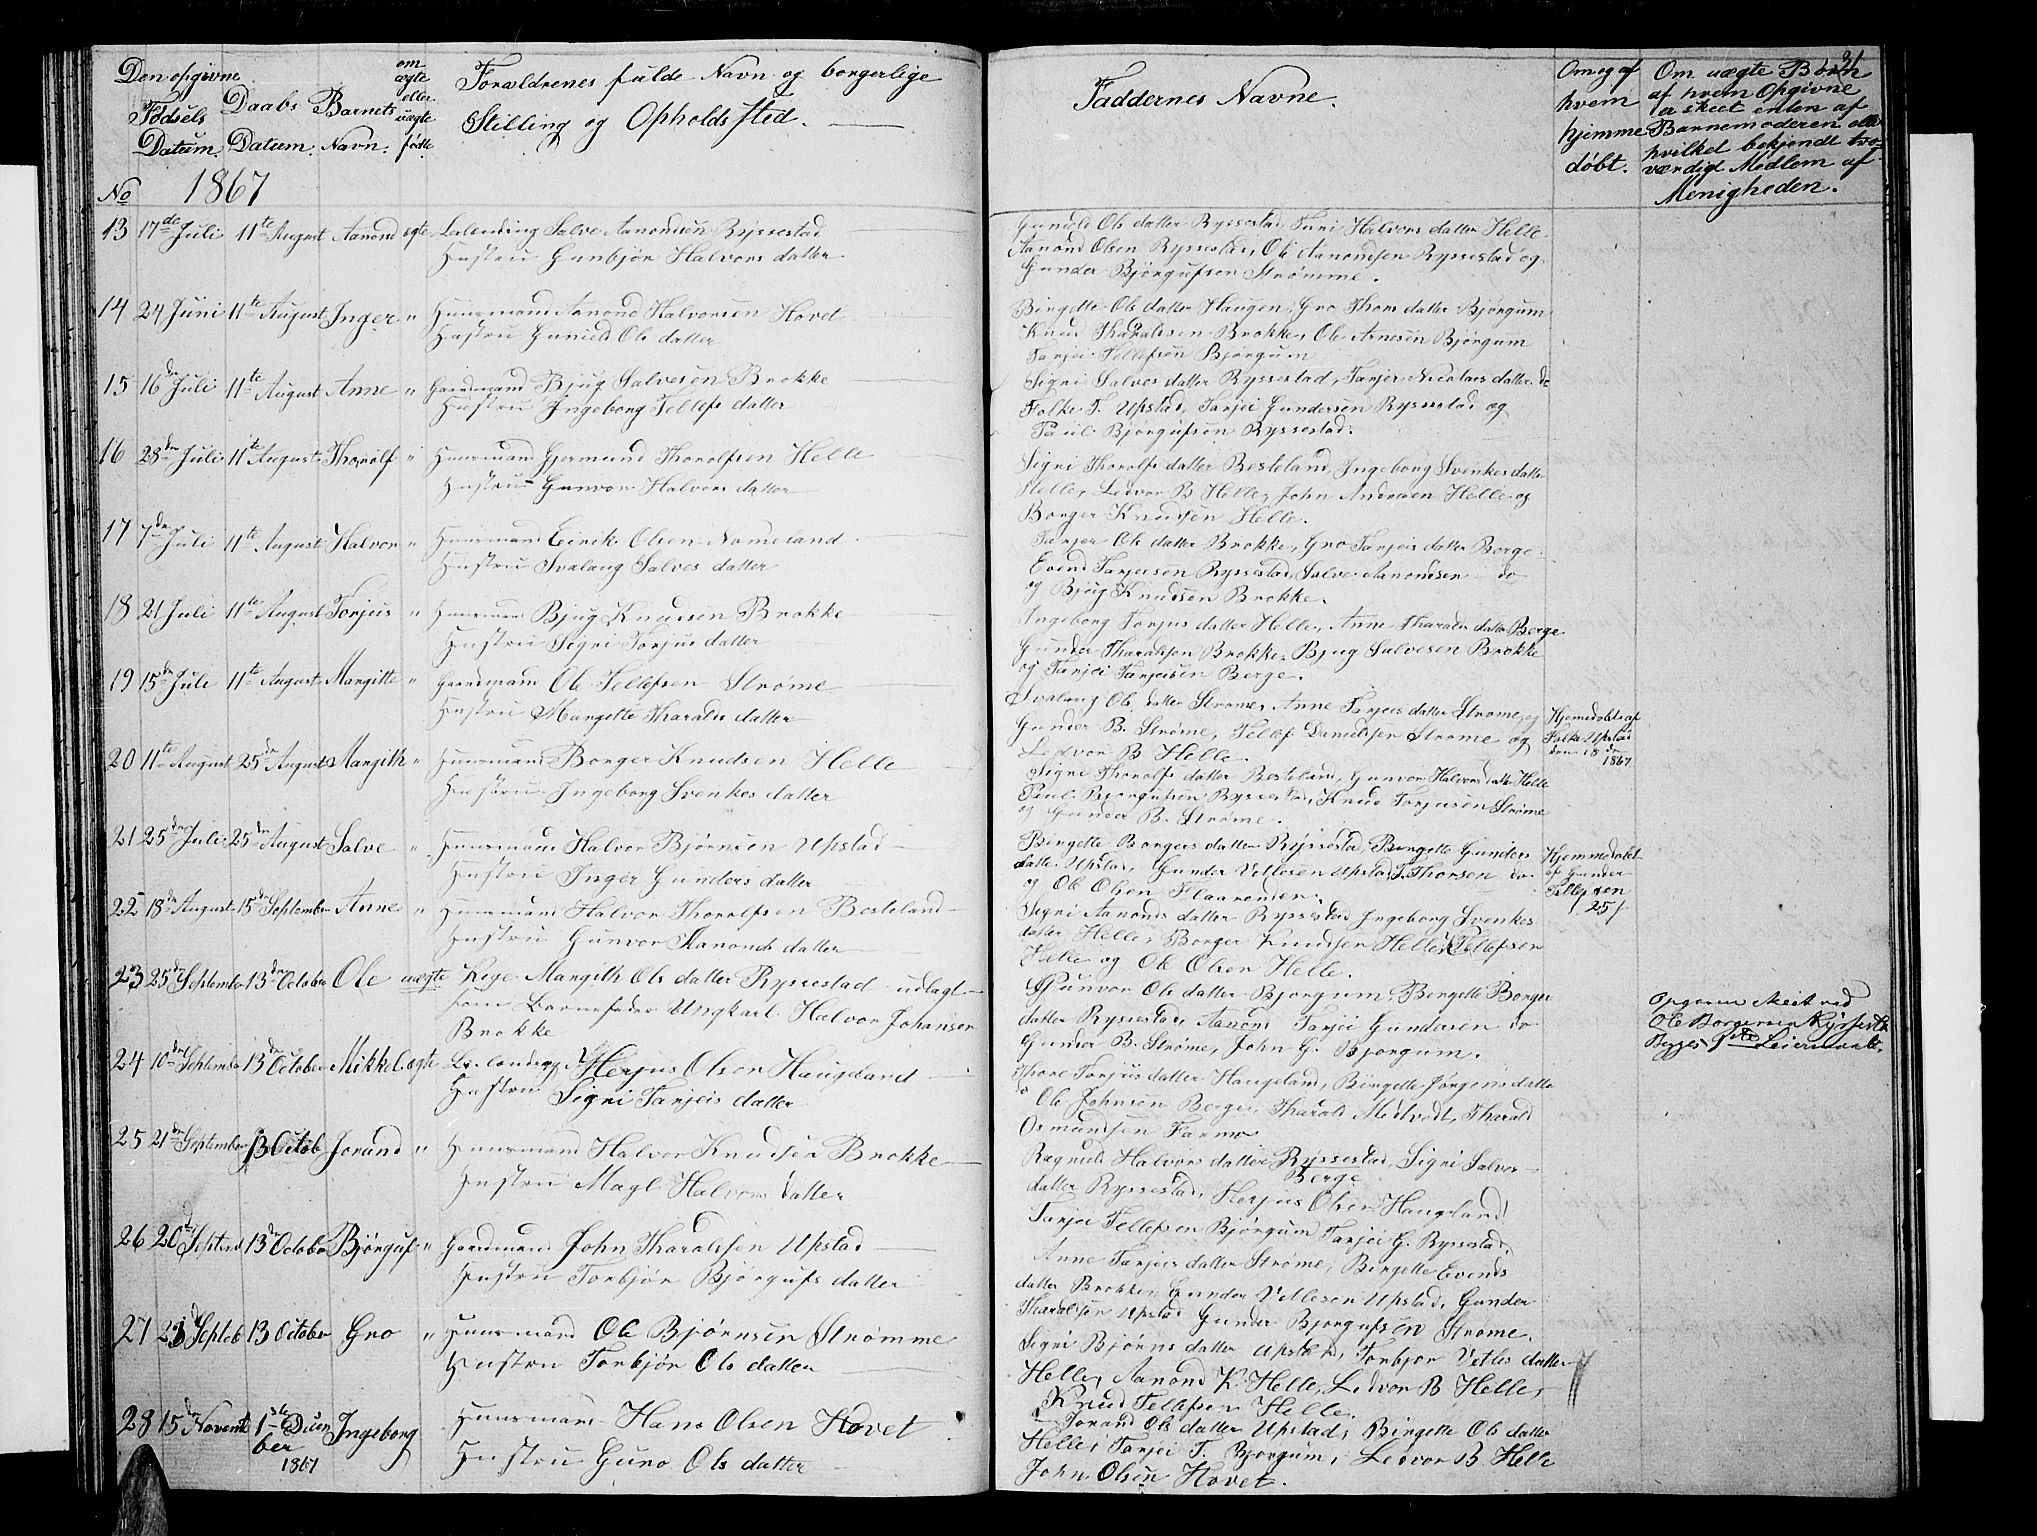 31
Den opgivne Fødsels Datum.
Daabs Datum.
Barnets Navn.
om ægte eller uægte født
Forældrenes fulde Navn og borgerlige
Stilling og Opholdssted.
Faddernes Navne.
Om og af hvem hjemme døbt.
Om uægte Børn
af hvem Opgivne
er skeet enten af
Barnemoderen eller
hvilket bekjendt tro-
værdigt Medlem af
Menigheden.
No 1867
13 17de Juli 11te August Aanond egte Leilending Salve Aanondsen Ryssestad
Hustru Gunbjør Halvors datter
Gunild Ols datter Ryssestad, Turi Halvors datter Helle
Aanond Olsen Ryssestad, Ole Aanondsen Ryssestad og
Gunder Bjørgufsen Strømme.
14 24 Juni 11te August Inger " Huusmand Aanond Halvorsen Hovet
Hustru Gunild Ols datter
Birgette Ols datter Haugen, Gro Thors datter Bjørgum
Knud Tharaldsen Brokke, Ole Arnesen Bjørgum
Tarjei Tellefsen Bjørgum
15 16de Juli 11te August Anne " Gaardmand Bjug Salvesen Brokke
Hustru Ingeborg Tellefs datter
Sigri Salves datter Ryssestad, Tarjer Nicolais datter do
Folke T. Upstad, Tarjei Gundersen Ryssestad og
Paul Bjørgufsen Ryssestad.
16 28de Juli 11te August Thorolf " Huusmand Gjermund Thorolfsen Helle
Hustru Gunvor Halvors datter
Sigri Thorolfs datter Besteland, Ingeborg Svenkes datter
Helle, Ledvor B Helle, John Andresen Helle og
Borger Knudsen Helle.
17 7de Juli 11te August Halvor " Huusmand Eirik Olsen Nomeland
Hustru Svalaug Salves datter
Tarjer Ols datter Brokke, Gro Tarjeis datter Berge
Evend Tarjeisen Ryssestad, Salve Aanondsen do
og Bjug Knudsen Brokke.
18 21 Juli 11te August Torjus " Huusmand Bjug Knudsen Brokke
Hustru Sigri Torjus datter
Ingeborg Torjus datter Helle, Anne Tharalds datter Berge
Gunder Tharaldsen Brokke, Bjug Salvesen Brokke
og Tarjei Tarjeisen Berge.
19 15de Juli 11te August Margitte " Gaardmand Ole Tellefsen Strøme
Hustru Margette Tharalds datter
Svalaug Ols datter Strøme, Anne Tarjeis datter Strøme og
Gunder B. Strøme, Tellef Danielsen Strøme og
Ledvor B Helle.
Hjemedøbt af
Folke Upstad
den 18de
1867
20 11te August 25de August Margith " Huusmand Borger Knudsen Helle
Hustru Ingeborg Svenkes datter
Sigri Thorolfs datter Besteland, Gunvor Halvors datter Helle
Paul Bjørgufsen Ryssestad, Knud Torjusen Strøme
og Gunder B. Strøme.
21 25de Juli 25de August Salve " Huusmand Halvor Bjørnsen Upstad
Hustru Inger Gunders datter
Birgette Borgers datter Ryssestad, Birgette Gunders
datter Upstad, Gunder Vetlesen Upstad, T. Thorsen do
og Ole Olsen Flaarenden.
Hjemmedøbt
af Gunder
Tellefsen
25/
22 18de August 15de September Anne " Huusmand Halvor Thorolfsen Besteland
Hustru Gunvor Aanonds datter
Sigri Aanonds datter Ryssestad Ingeborg Svenkes
datter Helle, Borger Knudsen Helle, Tellefsen
Helle og Ole Olsen Helle.
23 25de September 13de October Ole uægte Pige Margith Ols datter Ryssestad udlagt
som Barnefader Ungkarl Halvor Johansen
Brokke
Gunvor Ols datter Bjørgum, Bergette Borger
datter Ryssestad, Aanond Tarjei Gundersen do
Gunder B. Strøme, John G. Bjørgum.
Opgaven skeet ved
Ole Borgersen Ryssestad
Begges 1ste Leiermaal.
24 10de September 13de October Mikkel egte Leilending Herjus Olsen Haugland
Hustru Sigri Tarjeis datter
Thore Torjus datter Haugeland, Birgette Jørgens datter
do Ole Johnsen Berge, Tharald Medtvedt, Tharald
Osmundsen Farmo
25 21de September 13 Octob Jorand " Huusmand Halvor Knudsen Brokke
Hustru Magl Halvors datter
Ragnild Halvors datter Ryssestad, Sigri Salves
Berge
datter Ryssestad, Herjus Olsen Haugland
Tarjei Tellefsen Bjørgum Tarjei G. Ryssestad.
26 20d Septemb 13de October Bjørguf " Gaardmand John Tharaldsen Upstad
Hustru Torbjør Bjørgufs datter
Anne Tarjeis datter Strøme, Birgette Evends
datter Brokke, Gunder Vetlesen Upstad, Gunder
Tharaldsen Upstad Gunder Bjørgufsen Strøme.
27 23d Septeb 13 October Gro " Huusmand Ole Bjørnsen Strømme
Hustru Torbjør Ols datter
Sigri Bjørns datter Upstad, Torbjør Vetles datter
Helle, Aanond K. Helle, Ledvor B Helle,
Knud Tellefsen Helle.
28 15de Novemb 1ste Decem
ber
1867
Ingeborg Huusmand Hans Olsen Hovet
Hustru Guro Ols datter
Jorand Ols datter Upstad, Birgette Ols datter
Helle, Tarjei T. Bjørgum, Ledvor B Helle
John Olsen Hovet.